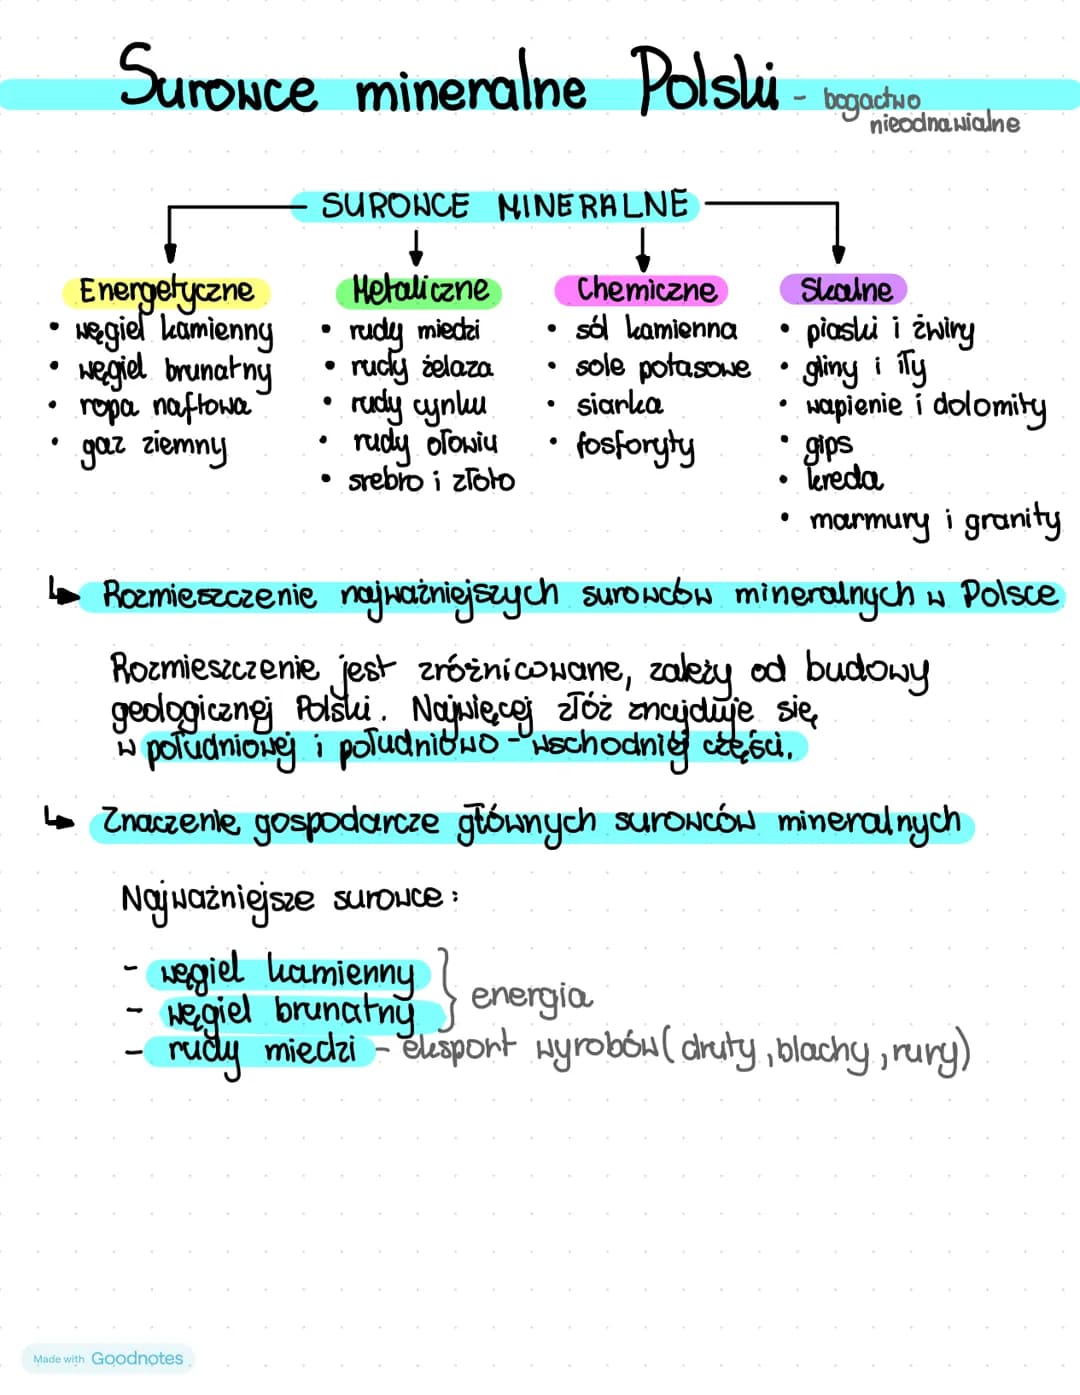 Surowce mineralne Polski - bogactwo
nieodnawialne
SUROWCE MINERALNE
Energetyczne
• węgiel kamienny
• węgiel brunatny
• ropa naftowa
• gaz ziemny
Metaliczne
• rudy miedzi
• rudy żelaza
• rudy cynku
• rudy ołowiu
• srebro i złoto
Chemiczne
• sól kamienna
• sole potasowe
• siarka
• fosforyty
Skalne
• piaski i żwiry
• gliny i iły
• wapienie i dolomity
• gips
• kreda
• marmury i granity
↳ Rozmieszczenie najważniejszych surowców mineralnych w Polsce
Rozmieszczenie jest zróżnicowane, zależy od budowy
geologicznej Polski. Najwięcej złóż znajduje się
w południowej i południowo-wschodniej części.
↳ Znaczenie gospodarcze głównych surowców mineralnych
Najważniejsze surowce:
- węgiel kamienny
- węgiel brunatny } energia
- rudy miedzi - eksport wyrobów (druty, blachy, rury)
Made with Goodnotes